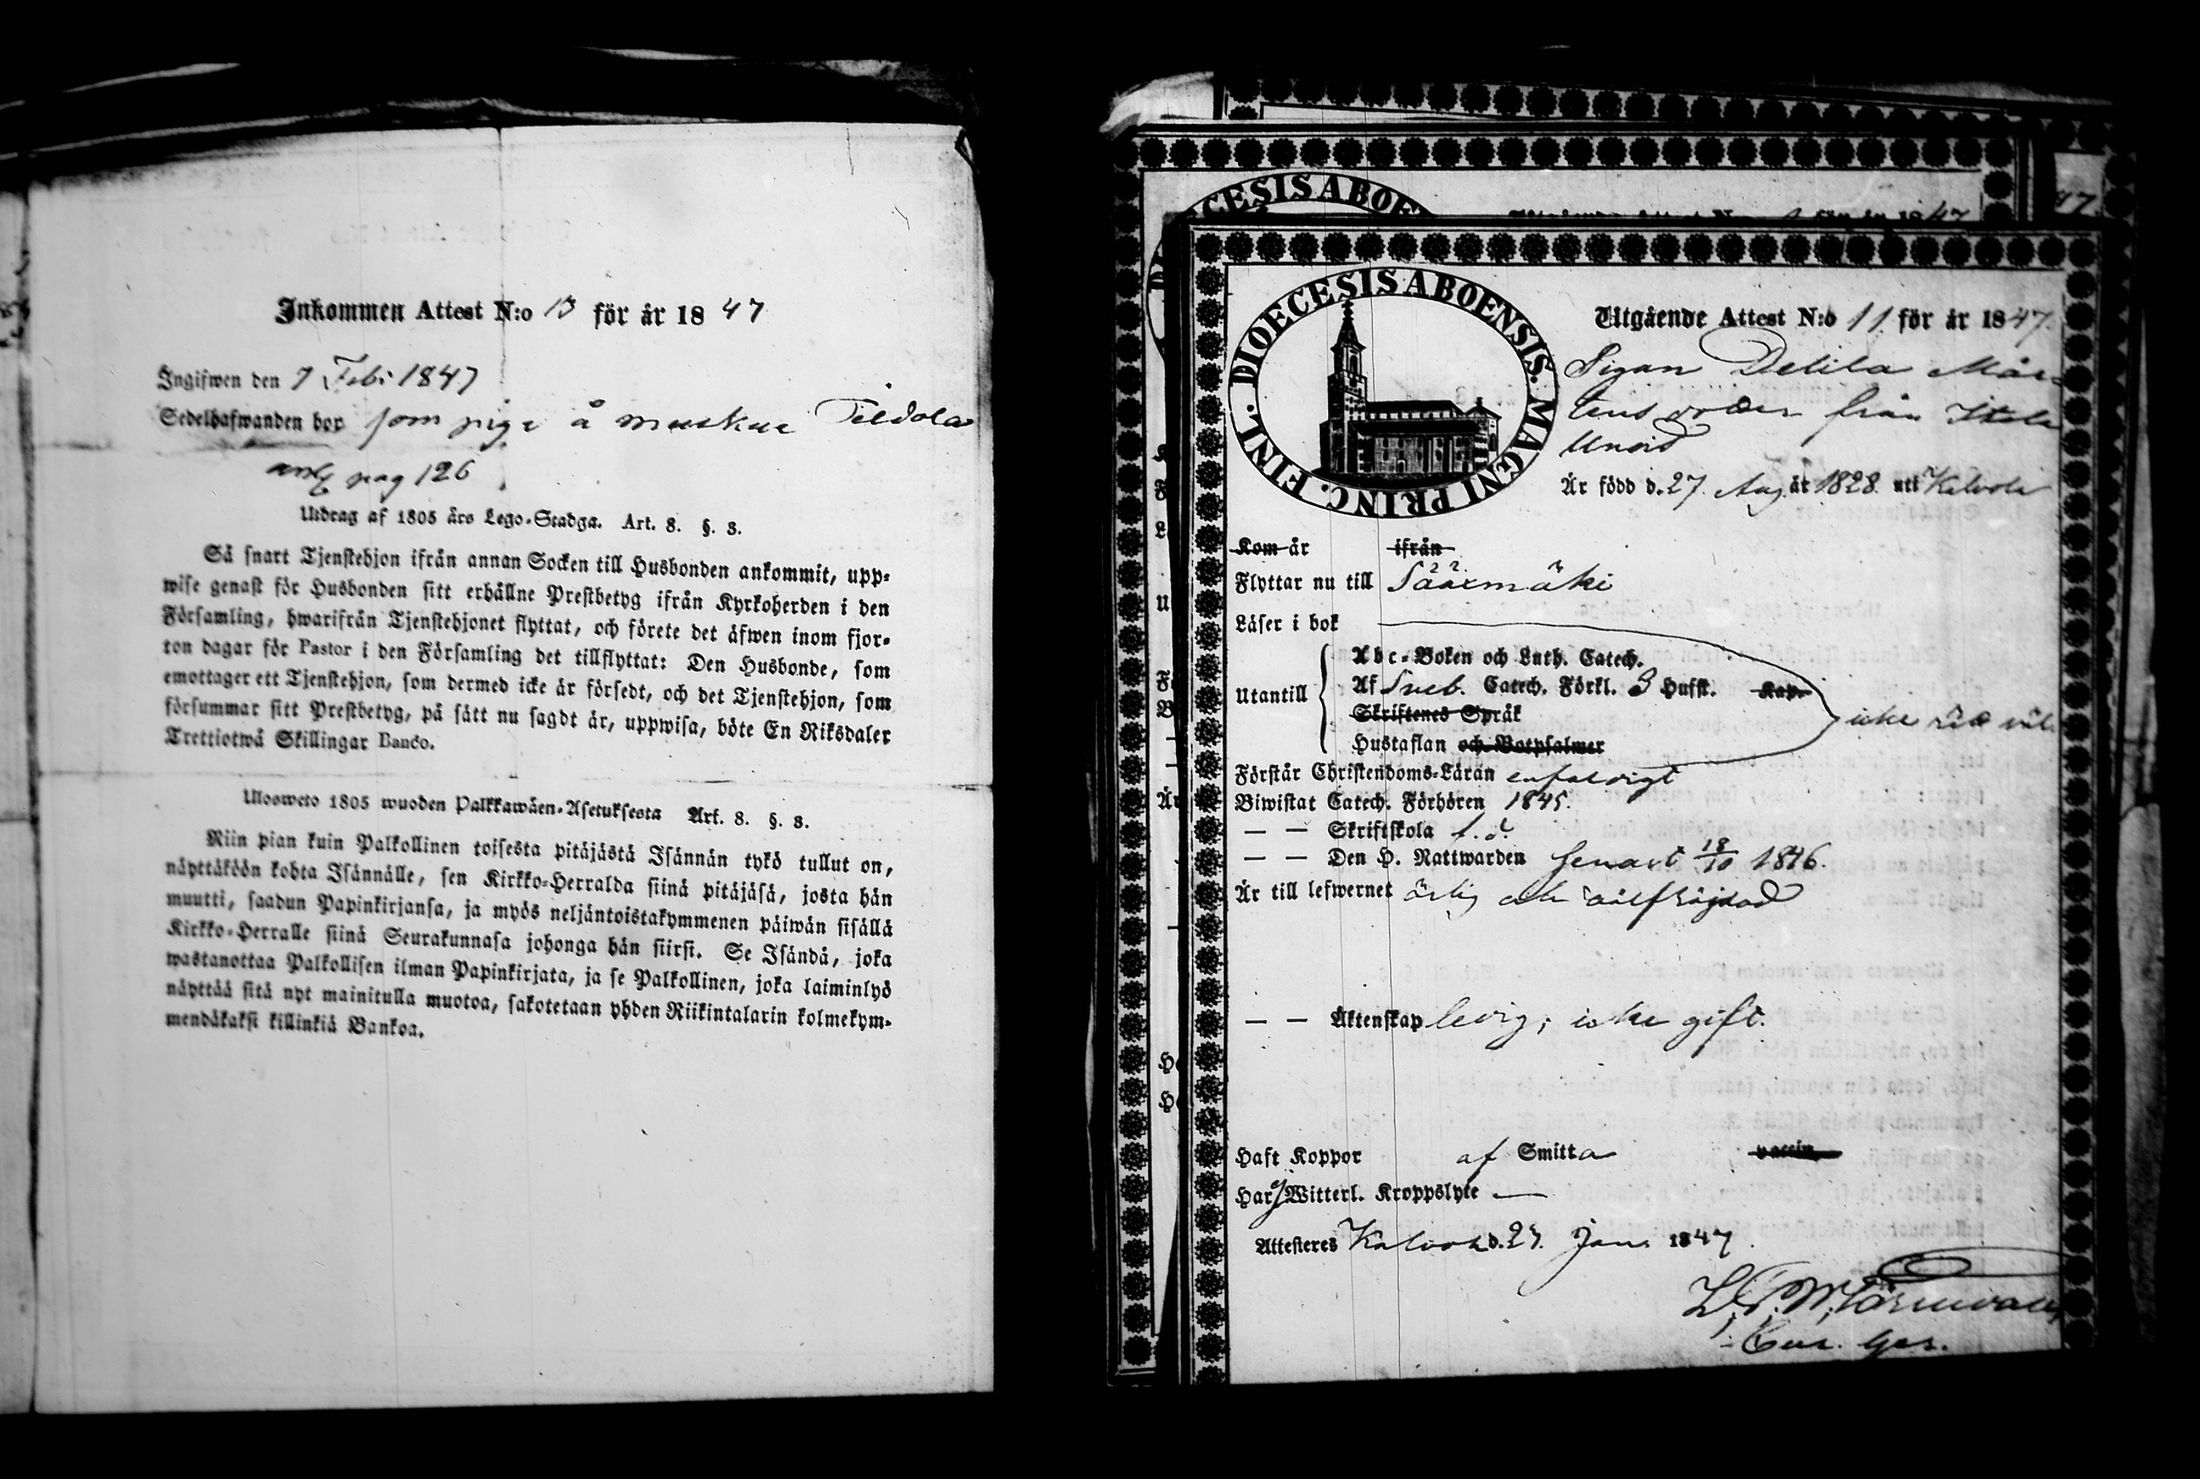 Inkommen Attest N:o 13 för år 1847
Ingifwen den 7 Feb: 1847
Sedelhafwanden bor som piga å
pag 126
Utdrag af 1805 års Lego-Stadga. Art. 8. §. 3.
Så snart Tjenstehjon ifrån annan Socken till Husbonden ankommit, upp-
wise genast för Husbonden sitt erhållne Prestbetyg ifrån Kyrkoherden i den
Församling, hwarifrån Tjenstehjonet flyttat, och förete det äfwen inom fjor-
ton dagar för Pastor i den Församling det tillflyttat: Den Husbonde, som
emottager ett Tjenstehjon, som dermed icke är försedt, och det Tjenstehjon, som
försummar sitt Prestbetyg, på sätt nu sagdt är, uppwisa, böte En Riksdaler
Trettiotwå Skillingar Banco.
Ulosweto 1805 wuoden Palkkawäen-Asetuksesta Art. 8. §. 3.
Niin pian kuin Palkollinen toisesta pitäjästä Isännän tykö tullut on,
näyttäköön kohta Isännälle, sen Kirkko-Herralda siinä pitäjäsä, josta hän
muutti, saadun Papinkirjansa, ja myös neljäntoistakymmenen päiwän sisällä
Kirkko-Herralle siinä Seurakunnasa johonga hän siirsi. Se Isändä, joka
wastanottaa Palkollisen ilman Papinkirjata, ja se Palkollinen, joka laiminlyö
näyttää sitä nyt mainitulla muotoa, sakotetaan yhden Riikintalarin kolmekym-
mendäkaksi killinkiä Bankoa.
DIOECESIS ABOENSIS. MAGNI PRINC. FINL.
Utgående Attest N:o 11 för år 1847.
Pigan Delila Mår-
tens doder från
Är född d. 27 Aug år 1828 uti Kalvola
Kom år ifrån
Flyttar nu till Sääxmäki
Läser i bok
Utantill
Abc-Boken och Luth. Catech.
Af Sveb. Catech. Förkl. 3 Hufst. Kap.
Skriftenes Språk
Hustaflan och Botpsalmer
icke rätt väl.
Förstår Christendoms-Läran enfaldigt
Biwistat Catech. Förhören 1845.
— — Skriftskola
— — Den H. Nattwarden senast 18/10 1846.
Är till lefwernet ärlig och välfräjdad
— — Äktenskap ledig; icke gift.
Haft Koppor af Smitta vaccin
Har ej Witterl. Kroppslyte —
Attesteres Kalvola d. 27. Jan. 1847